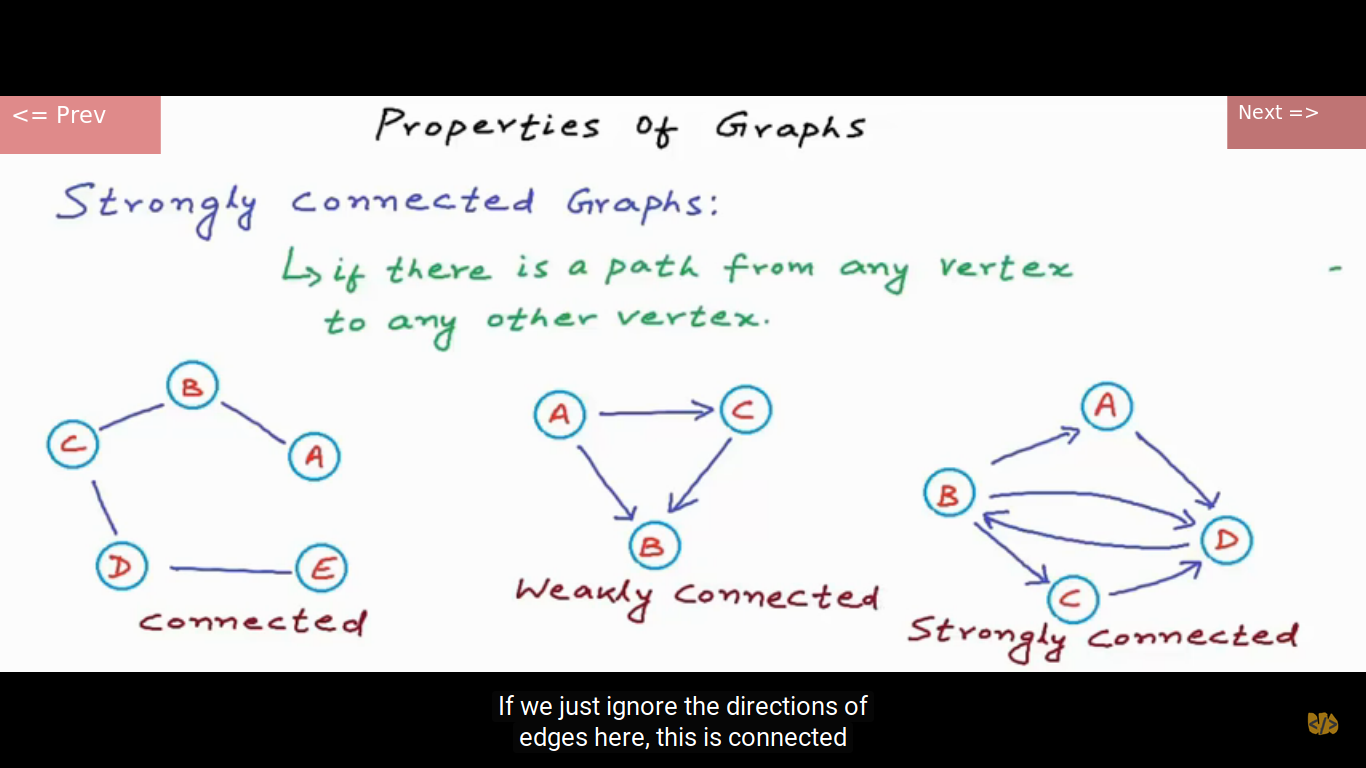 <= Prev
Properties of Graphs
Next =>
Strongly connected Graphs:
↳ if there is a path from any vertex
to any other vertex.
B
C
A
D
E
connected
A
C
B
Weakly connected
A
B
D
C
Strongly connected
If we just ignore the directions of
edges here, this is connected